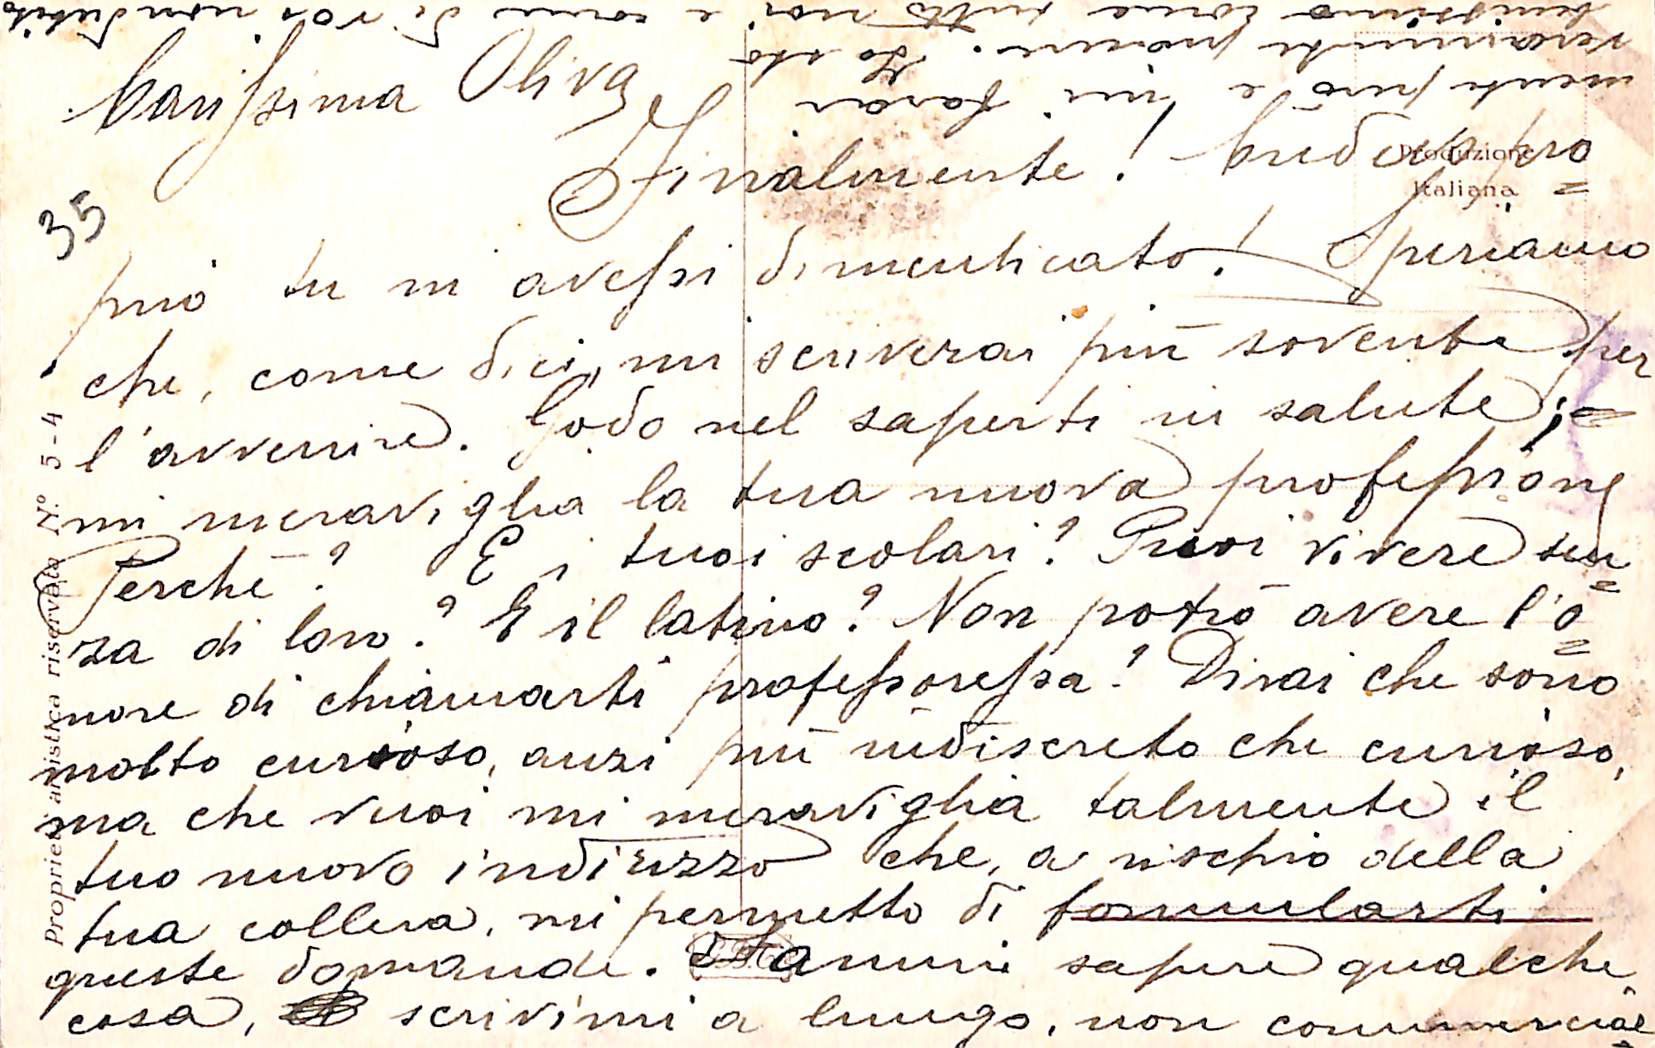 Carissima Oliva
Finalmente! Credevo pro=
prio tu mi avessi dimenticato! Speriamo
che, come dici, mi scriverai più sovente per
l'avvenire. Godo nel saperti in salute;=
mi meraviglia la tua nuova professione
Perchè? E i tuoi scolari? Puoi vivere sen=
za di loro? E il latino? Non potrò avere l'o=
nore di chiamarti professoressa? Dirai che sono
molto curioso, anzi più indiscreto che curioso,
ma che vuoi mi meraviglia talmente il
tuo nuovo indirizzo che, a rischio della
tua collera, mi permetto di formularti
queste domande. Fammi sapere qualche
cosa, scrivimi a lungo, non commercial=
mente però e mi farai
veramente piacere. Io sto
benissimo come tutti noi e come di voi non dubito
35
Produzione
Italiana
Proprietà artistica riservata N.º 5-4